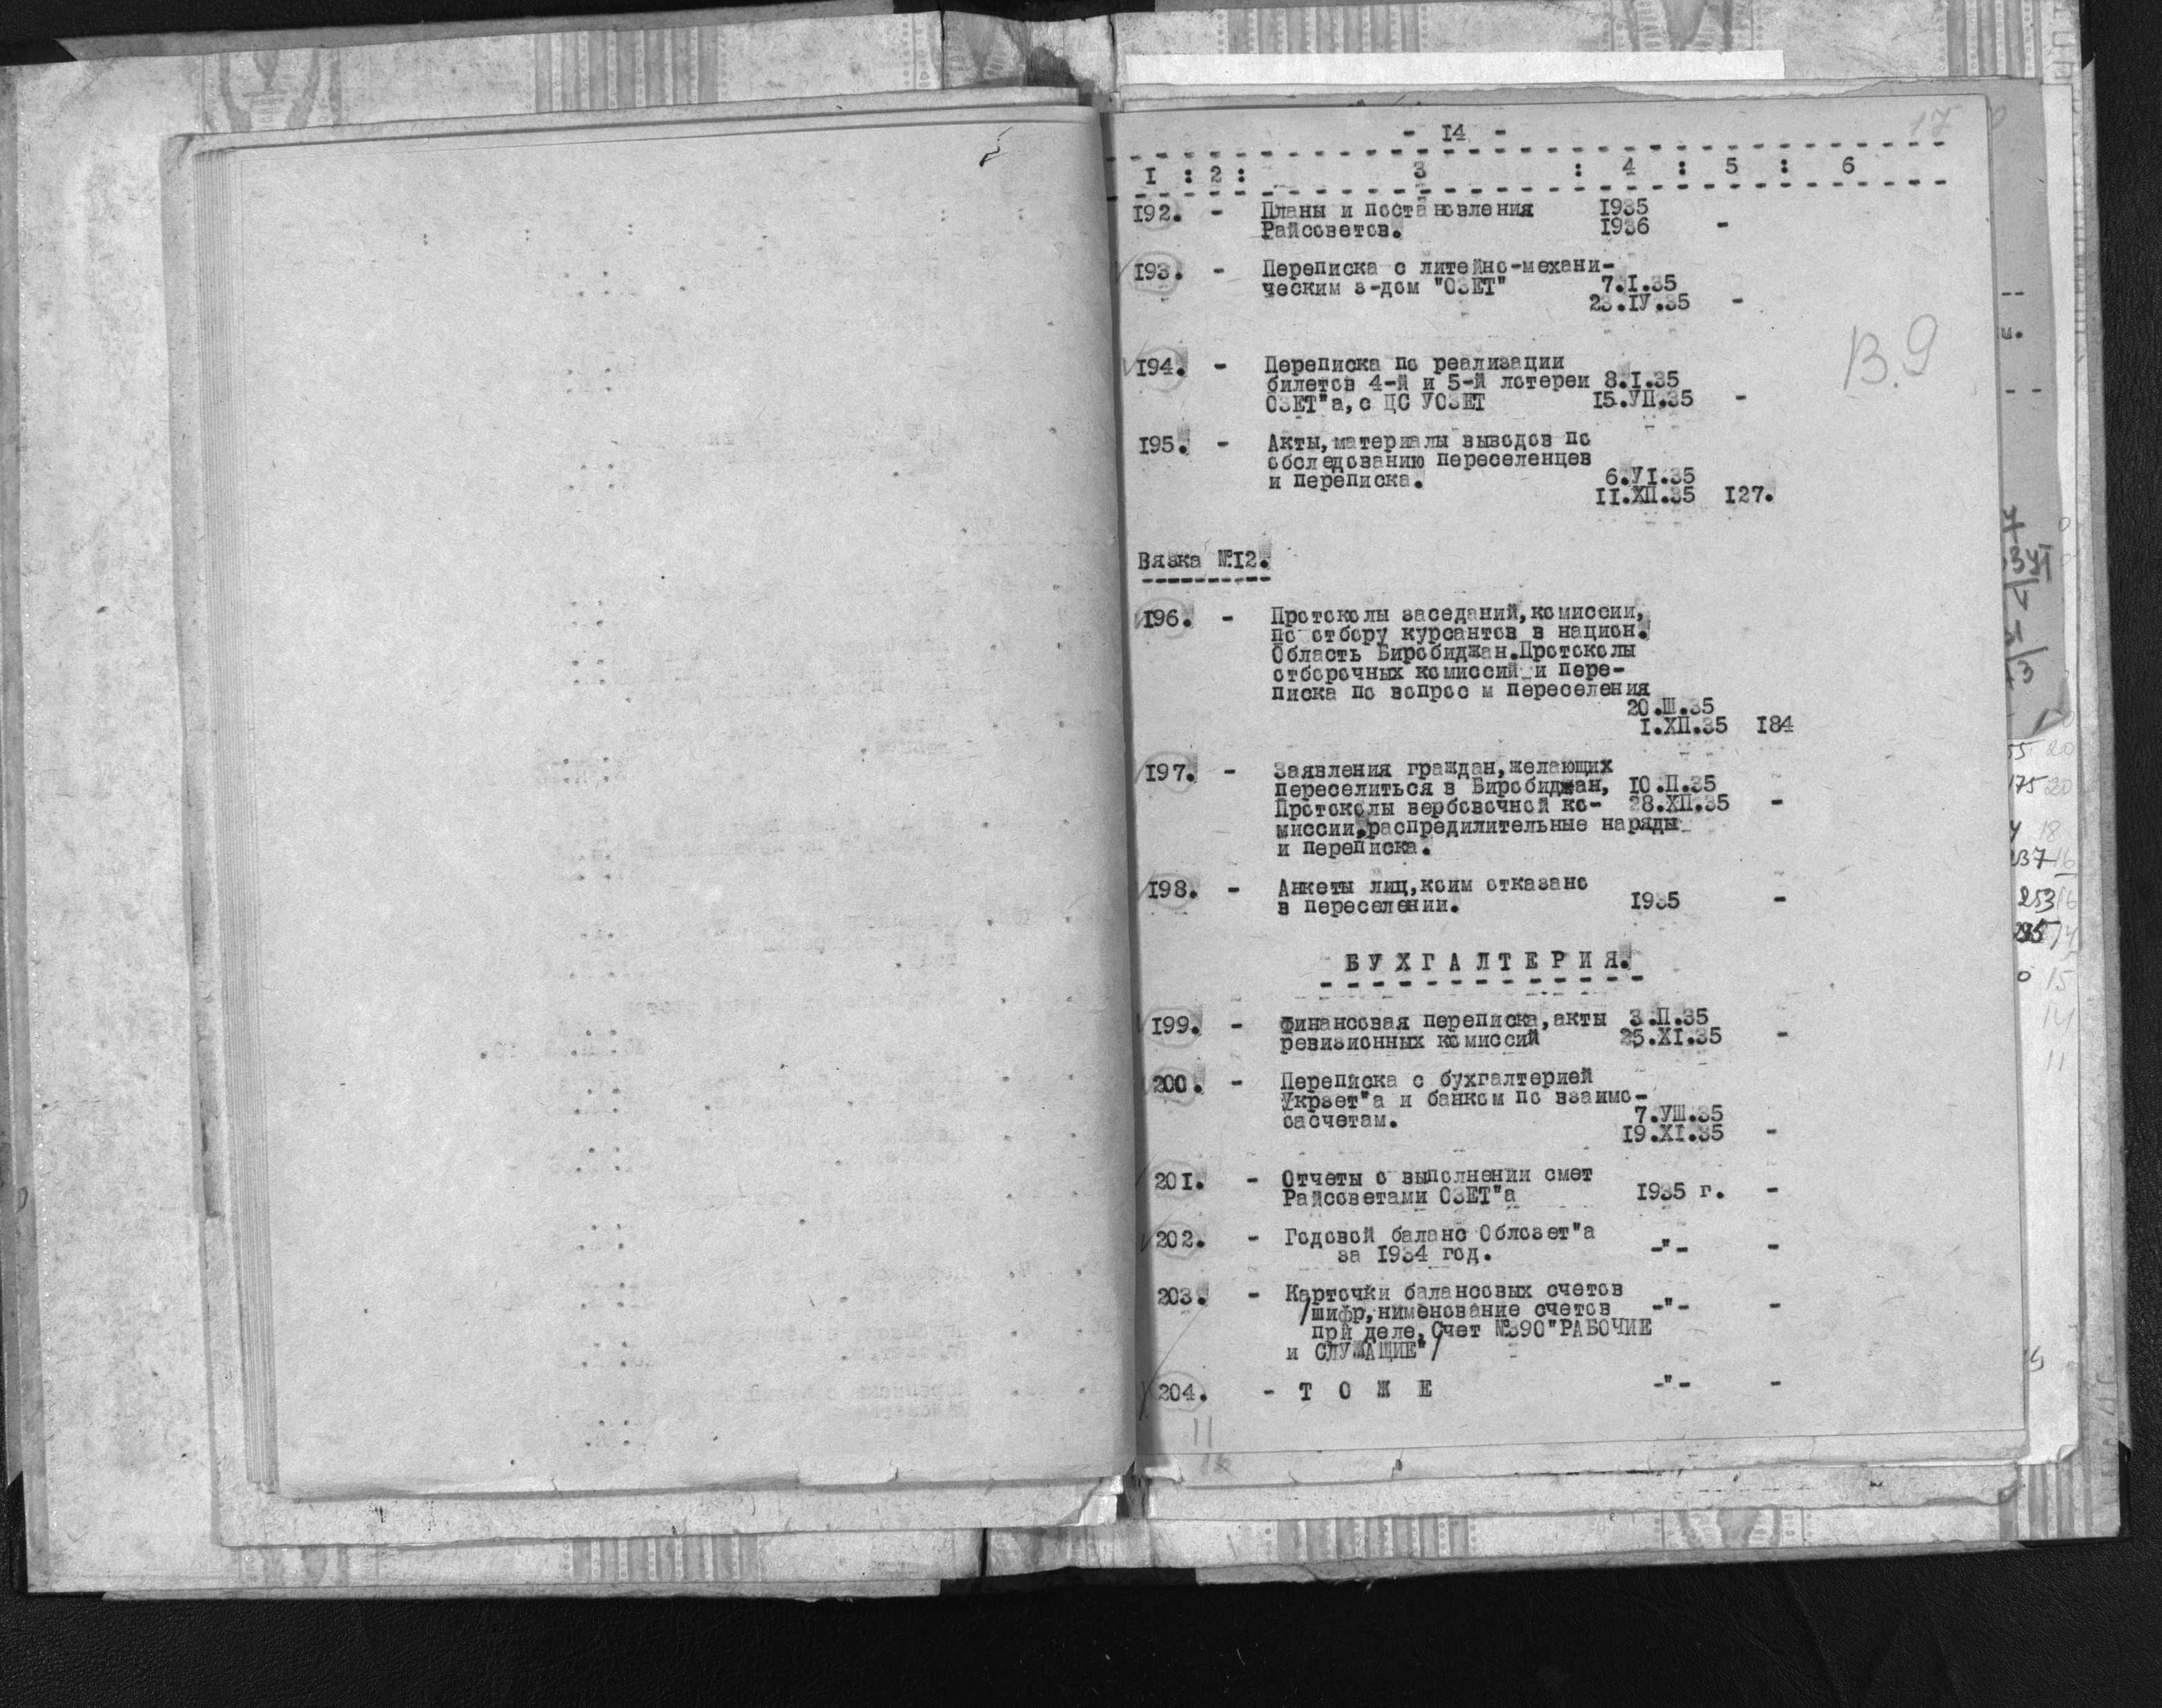 17
- I4 -
I : 2 : 3 : 4 : 5 : 6
I92. - Планы и постановления I935
Райсоветов. I936 -
I93. - Переписка с литейно-механи-
ческим з-дом "ОЗЕТ" 7.I.35
23.IУ.35 -
В.9
I94. - Переписка по реализации
билетов 4-й и 5-й лотереи 8.I.35
ОЗЕТ"а,с ЦС УОЗЕТ I5.УП.35 -
I95. - Акты,материалы выводов по
обследованию переселенцев
и переписка. 6.УI.35
II.ХП.35 I27.
Вязка №I2.
I96. - Протоколы заседаний,комиссии,
по отбору курсантов в национ.
Область Биробиджан.Протоколы
отборочных комиссий и пере-
писка по вопрос м переселения
20.Ш.35
I.ХП.35 I84
I97. - Заявления граждан,желающих
переселиться в Биробиджан, I0.П.35
Протоколы вербовочной ко- 28.ХП.35 -
миссии,распредилительные наряды
и переписка.
I98. - Анкеты лиц,коим отказано
в переселении. I935 -
БУХГАЛТЕРИЯ.
I99. - Финансовая переписка,акты 3.П.35
ревизионных комиссий 25.ХI.35 -
200. - Переписка с бухгалтерией
Укрзет"а и банком по взаимо-
расчетам. 7.УШ.35
I9.ХI.35 -
20I. - Отчеты о выполнении смет
Райсоветами ОЗЕТ"а I935 г. -
202. - Годовой баланс Облозет"а
за I934 год. -"- -
203. - Карточки балансовых счетов
/шифр,нименование счетов -"- -
при деле,Счет №390"РАБОЧИЕ
и СЛУЖАЩИЕ"/
204. - Т О Ж Е -"- -
11